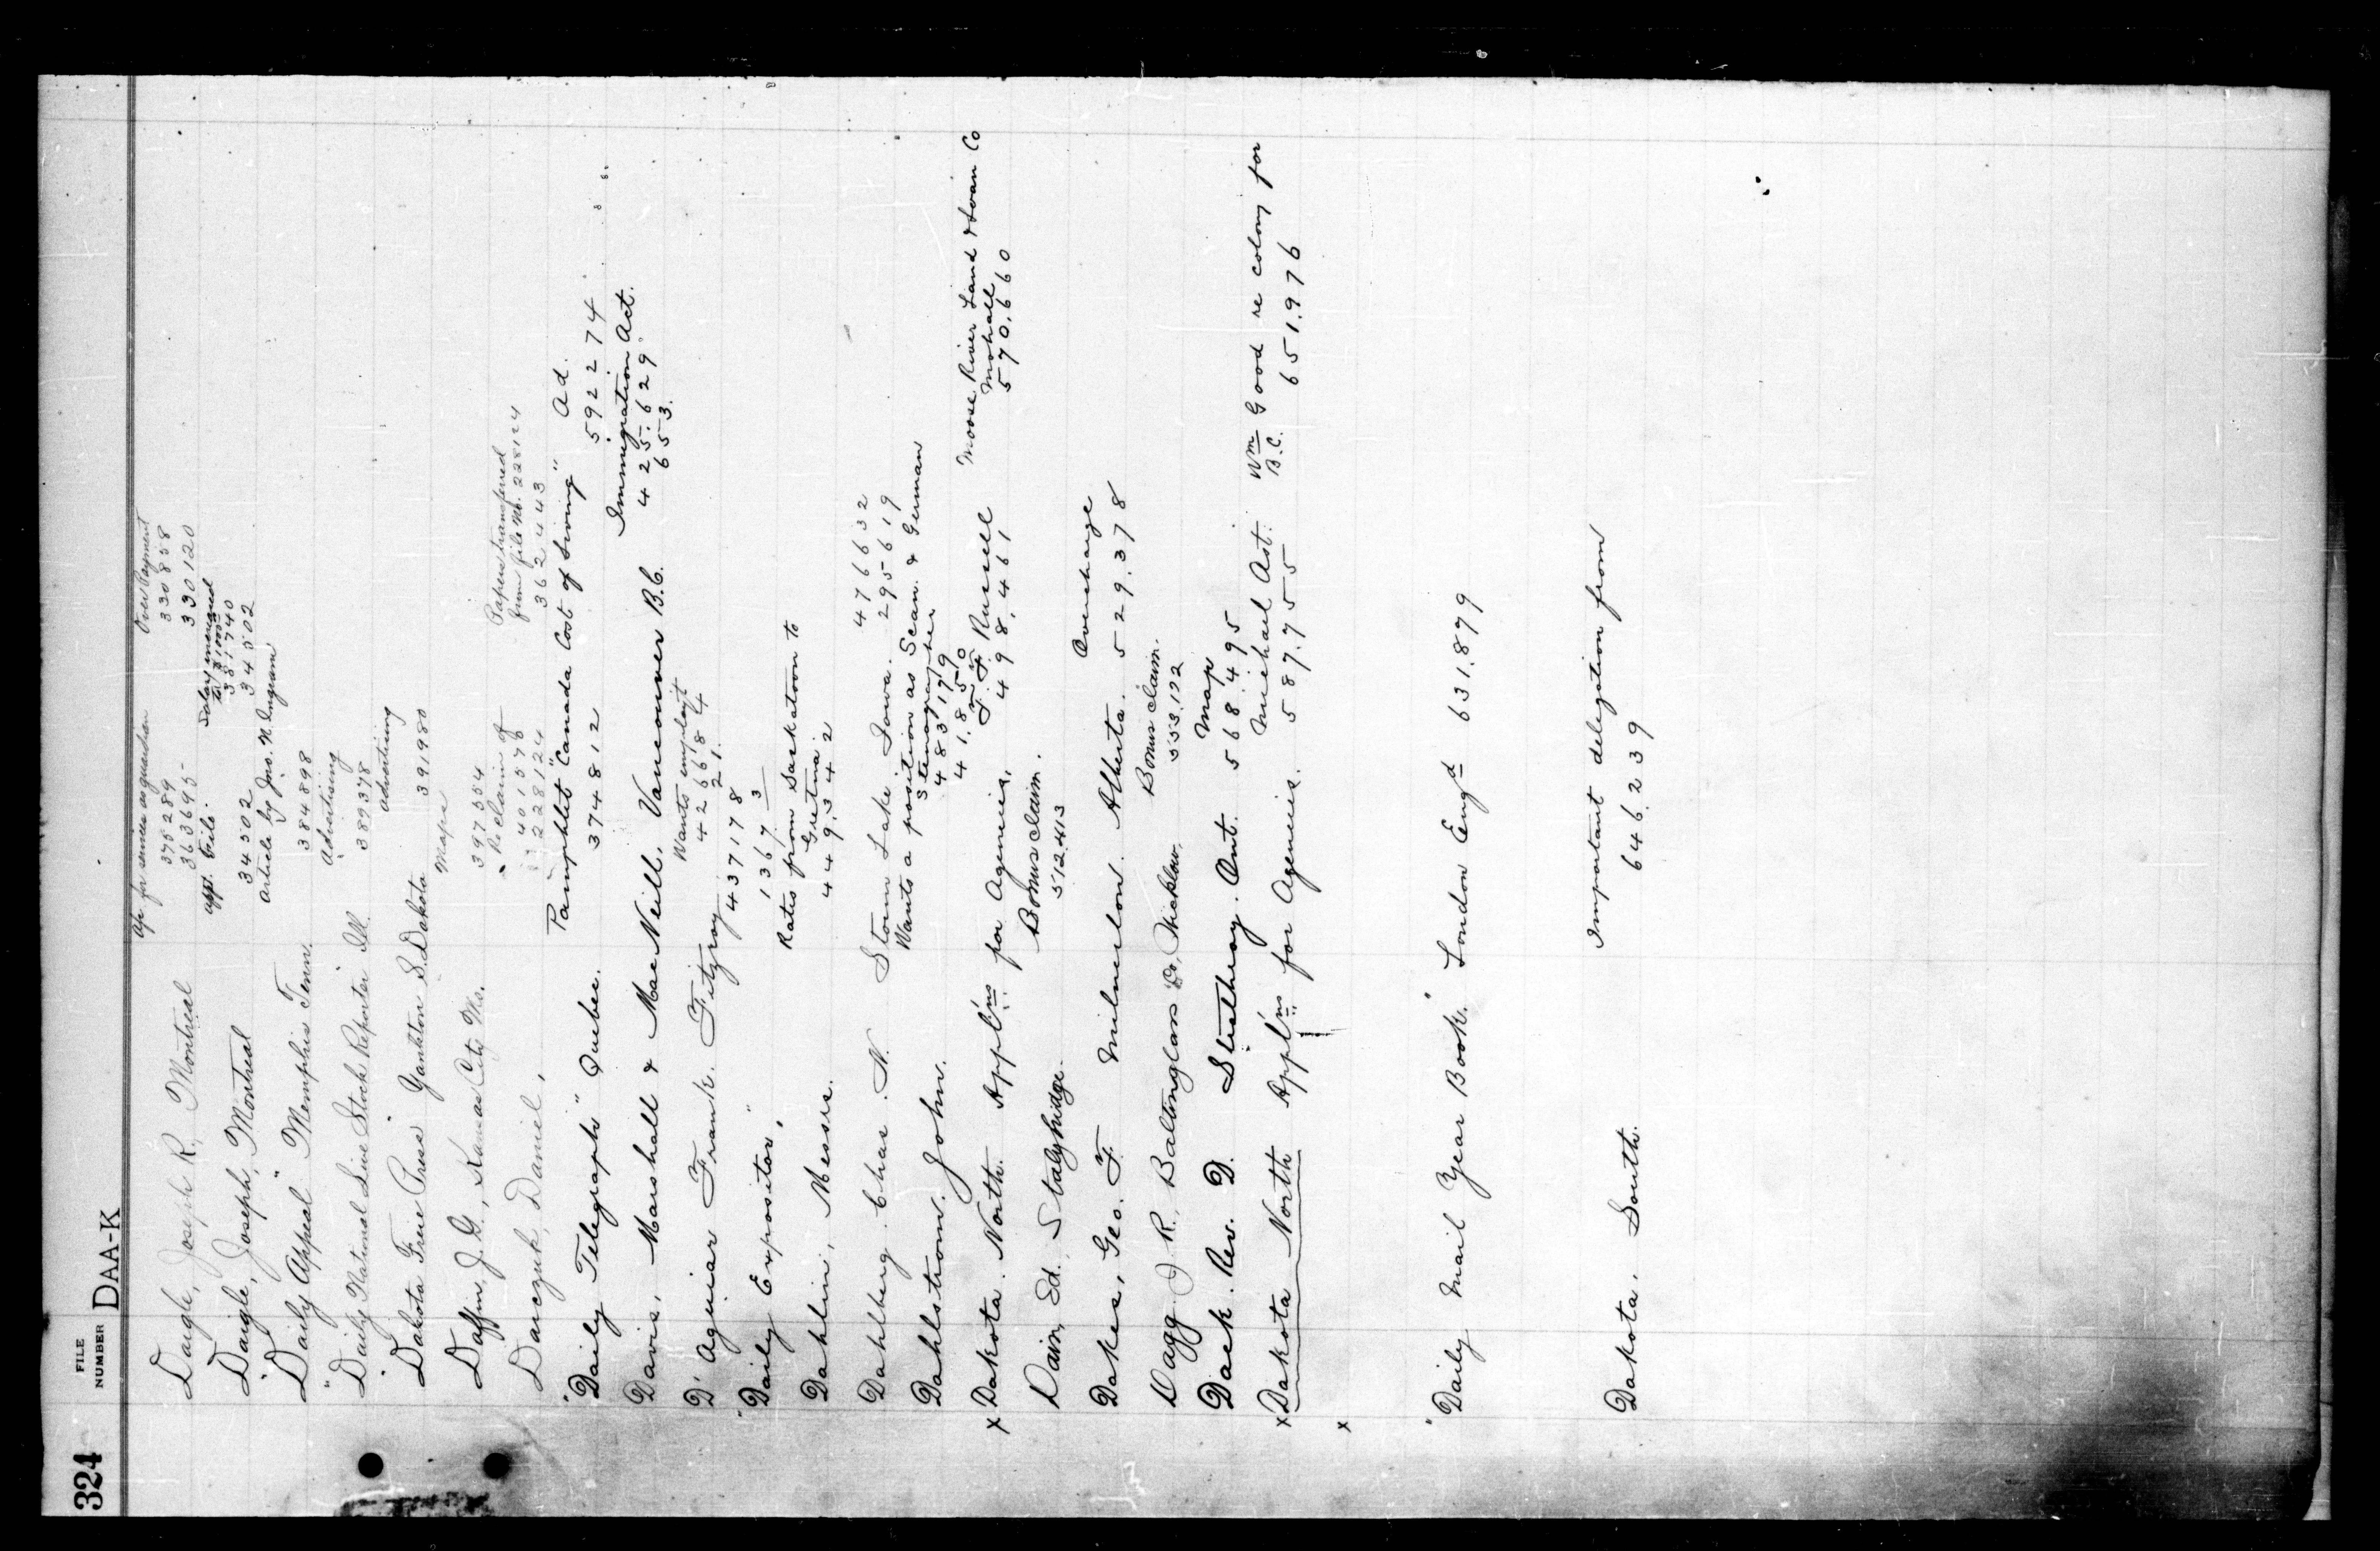 324 FILE NUMBER DAA-K
Daigle, Joseph R, Montreal
for services as guardian
375289
363695
Over Payment
330858
330120
Daigle, Joseph, Montreal
appt. File.
34502
381740
34502
"Daily Appeal" Memphis Tenn.
Article by Jno. N. Ingram
384898
"Daily National Live Stock Reporter" Ill.
Advertising
389378
"Dakota Free Press" Yankton S. Dakota
Advertising
391980
Daffin, J. G., Kansas City Mo.
Maps
397554
Daniel,
401576
228124
Papers transferred
from file No. 228124
362443
"Daily Telegraph" Quebec.
Pamphlet "Canada Cost of Living"
374812
Ad.
592274
Davis, Marshall & MacNeill, Vancouver B.C.
Immigration Act.
425.629
653.
D'Aguiar Frank. Fitzroy
Wants employt
426684
21.
"Daily Expositor,"
437178
1367 3
Dahlin, Messrs.
Rates from Saskatoon to
Gretna.
449.342
Dahlberg. Chas. N. Storm Lake. Iowa.
476632
295619
Dahlstrom. John.
Wants a position as Scan. & German
Stenographer
483179
41.850
x Dakota. North. Appl'ns for Agencies.
J. F. Russell
498.461
Moose River Land & Loan Co
Mohall
570.660
Dain, Ed. Stalybridge.
Bonus claim.
512.413
Dakes, Geo. F. Milnerton. Alberta.
Overcharge
529.378
Dagg J. R. Baltinglass Co. Wicklow.
Bonus claim.
553.192
Dack. Rev. D. Strathroy. Ont.
Map
568.495
x Dakota North Appl'ns for Agencies.
Michael Ast.
587.755
Wm Good re colony for
B.C.
651.976
x
"Daily Mail Year Book." London Eng'd 631.879
Dakota. South.
Important delegation from
646.239